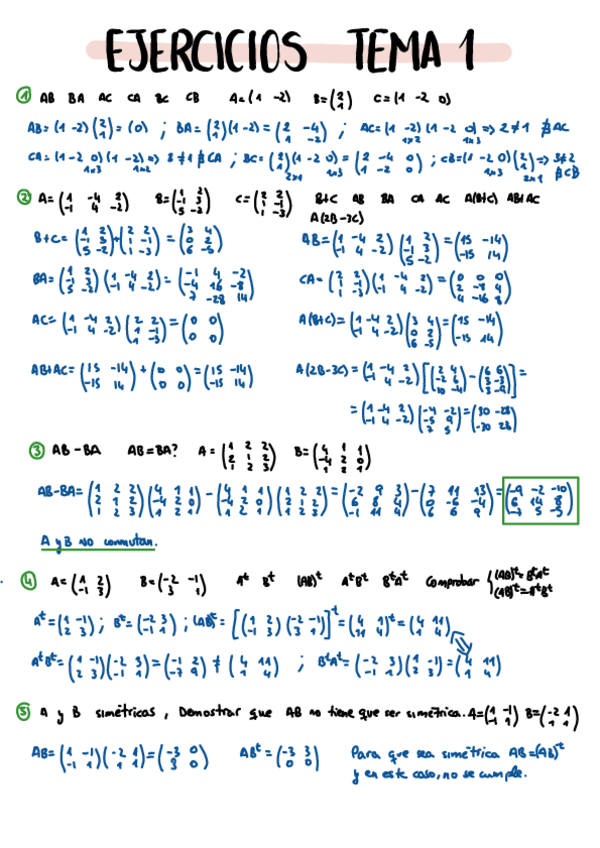 EJERCICIOS TEMA 1
① AB BA AC CA BC CB A=(1 -2) B=(2 1) C=(1 -2 0)
AB=(1 -2)(2 1)=(0) ; BA=(2 1)(1 -2)=(2 -4 1 -2) ; AC=(1 -2)(1 -2 0) => 2≠1 ∄AC
1x2 1x3
CA=(1 -2 0)(1 -2) => 3≠1 ∄CA ; BC=(2 1)(1 -2 0)=(2 -4 0 1 -2 0) ; CB=(1 -2 0)(2 1) => 3≠2 ∄CB
1x3 1x2 2x1 1x3 1x3 2x1
② A=(1 -4 2 -1 4 -2) B=(1 2 -1 3 5 -2) C=(2 2 1 -1 1 -3) B+C AB BA CA AC A(B+C) AB+AC
A(2B-3C)
B+C=(1 2 -1 3 5 -2)+(2 2 1 -1 1 -3)=(3 4 0 2 6 -5) AB=(1 -4 2 -1 4 -2)(1 2 -1 3 5 -2)=(15 -14 -15 14)
BA=(1 2 -1 3 5 -2)(1 -4 2 -1 4 -2)=(-1 4 -2 -4 16 -8 7 -28 14) CA=(2 2 1 -1 1 -3)(1 -4 2 -1 4 -2)=(0 0 0 2 -8 4 4 -16 8)
AC=(1 -4 2 -1 4 -2)(2 2 1 -1 1 -3)=(0 0 0 0) A(B+C)=(1 -4 2 -1 4 -2)(3 4 0 2 6 -5)=(15 -14 -15 14)
AB+AC=(15 -14 -15 14)+(0 0 0 0)=(15 -14 -15 14) A(2B-3C)=(1 -4 2 -1 4 -2)[(2 4 -2 6 10 -4)-(6 6 3 -3 3 -9)]=
=(1 -4 2 -1 4 -2)(-4 -2 -5 9 7 5)=(30 -28 -30 28)
③ AB-BA AB=BA? A=(1 2 2 2 1 2 1 2 3) B=(4 1 1 -4 2 0 1 2 1)
AB-BA=
A y B no conmutan.
④ A=(1 2 -1 3) B=(-2 -1 3 1) Aᵗ Bᵗ (AB)ᵗ AᵗBᵗ BᵗAᵗ Comprobar {(AB)ᵗ=BᵗAᵗ
(AB)ᵗ=AᵗBᵗ
Aᵗ=(1 -1 2 3) ; Bᵗ=(-2 3 -1 1) ; (AB)ᵗ=[(1 2 -1 3)(-2 -1 3 1)]ᵗ=(4 1 11 4)ᵗ=(4 11 1 4)
AᵗBᵗ=(1 -1 2 3)(-2 3 -1 1)=(-1 2 -7 9)≠(4 11 1 4) ; BᵗAᵗ=(-2 3 -1 1)(1 -1 2 3)=(4 11 1 4)
⑤ A y B simétricas, Demostrar que AB no tiene que ser simétrica. A=(1 -1 -1 1) B=(-2 1 1 1)
AB=(1 -1 -1 1)(-2 1 1 1)=(-3 0 3 0) ABᵗ=(-3 3 0 0) Para que sea simétrica AB=(AB)ᵗ
y en este caso, no se cumple.